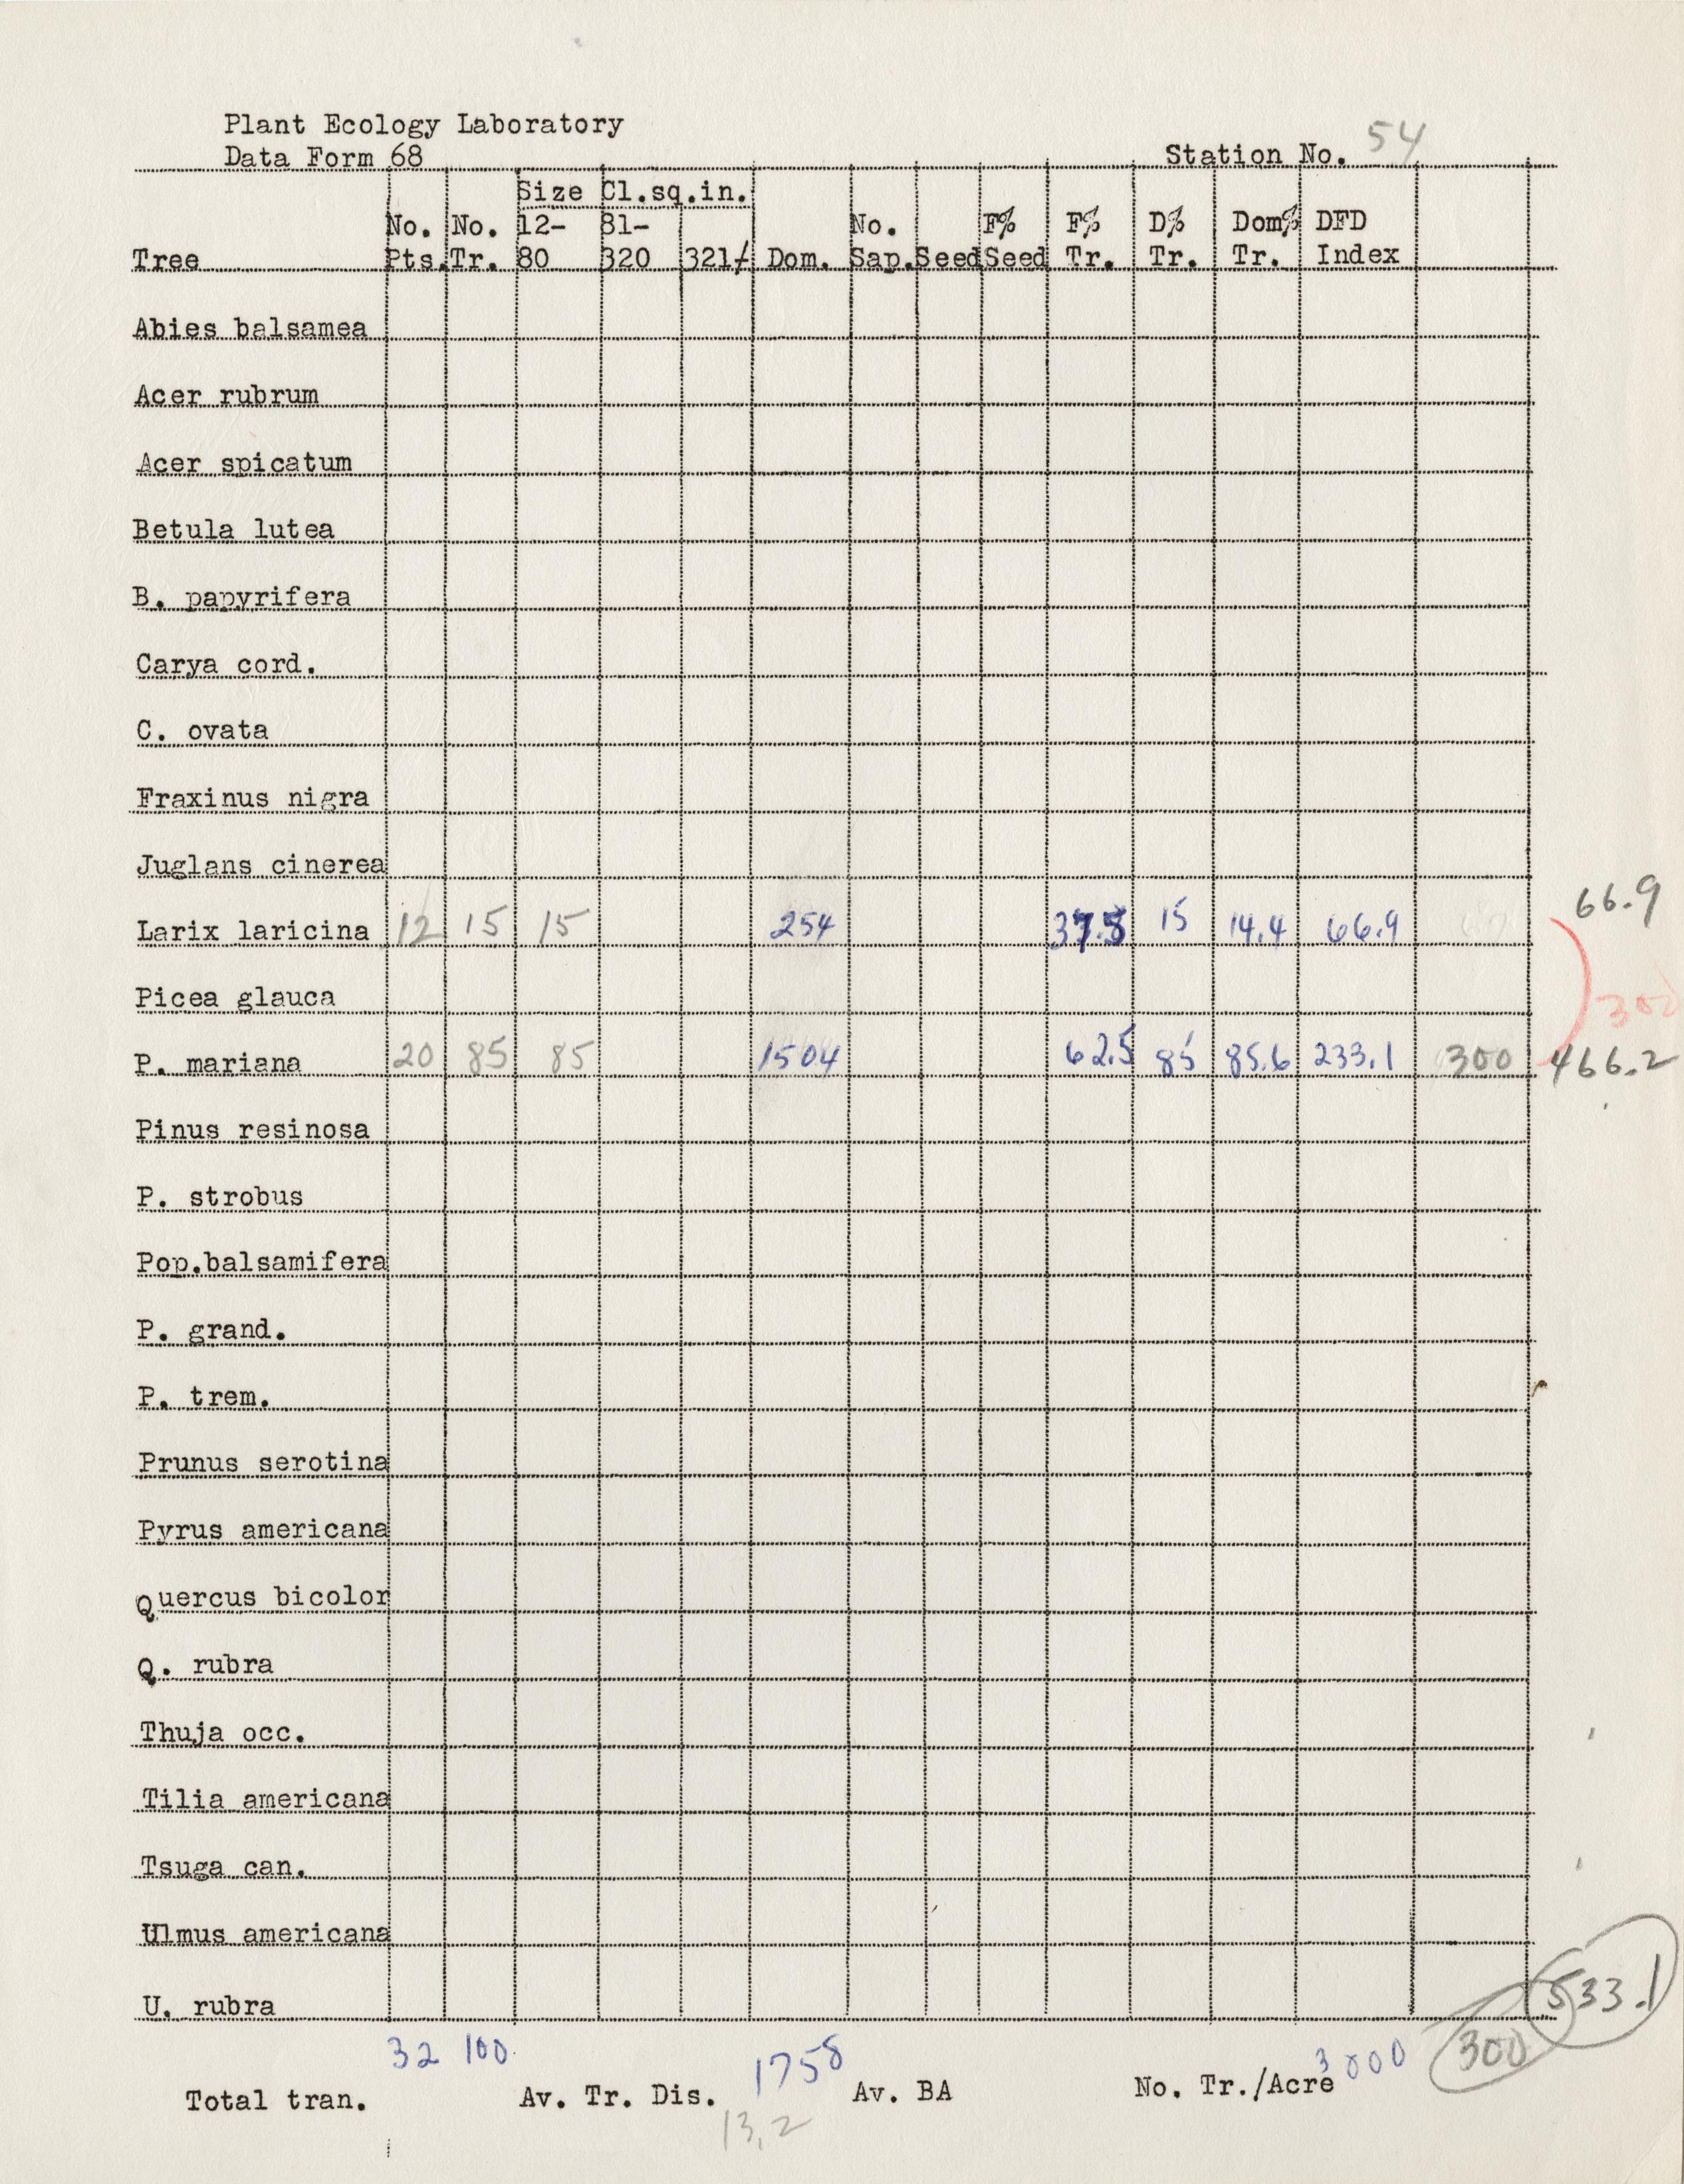 Plant Ecology Laboratory
Data Form 68
Station No. 54
Size Cl.sq.in.
No. No. 12- 81- No. F% F% D% Dom% DFD
Tree Pts. Tr. 80 320 321/ Dom. Sap. Seed Seed Tr. Tr. Tr. Index
Abies balsamea
Acer rubrum
Acer spicatum
Betula lutea
B. papyrifera
Carya cord.
C. ovata
Fraxinus nigra
Juglans cinerea
66.9
Larix laricina 12 15 15 254 37.5 15 14.4 66.9
Picea glauca 300
P. mariana 20 85 85 1504 62.5 85 85.6 233.1 300 466.2
Pinus resinosa
P. strobus
Pop.balsamifera
P. grand.
P. trem.
Prunus serotina
Pyrus americana
Quercus bicolor
Q. rubra
Thuja occ.
Tilia americana
Tsuga can.
Ulmus americana
533.1
U. rubra
32 100 1758 3000 300
Total tran. Av. Tr. Dis. Av. BA No. Tr./Acre
13.2